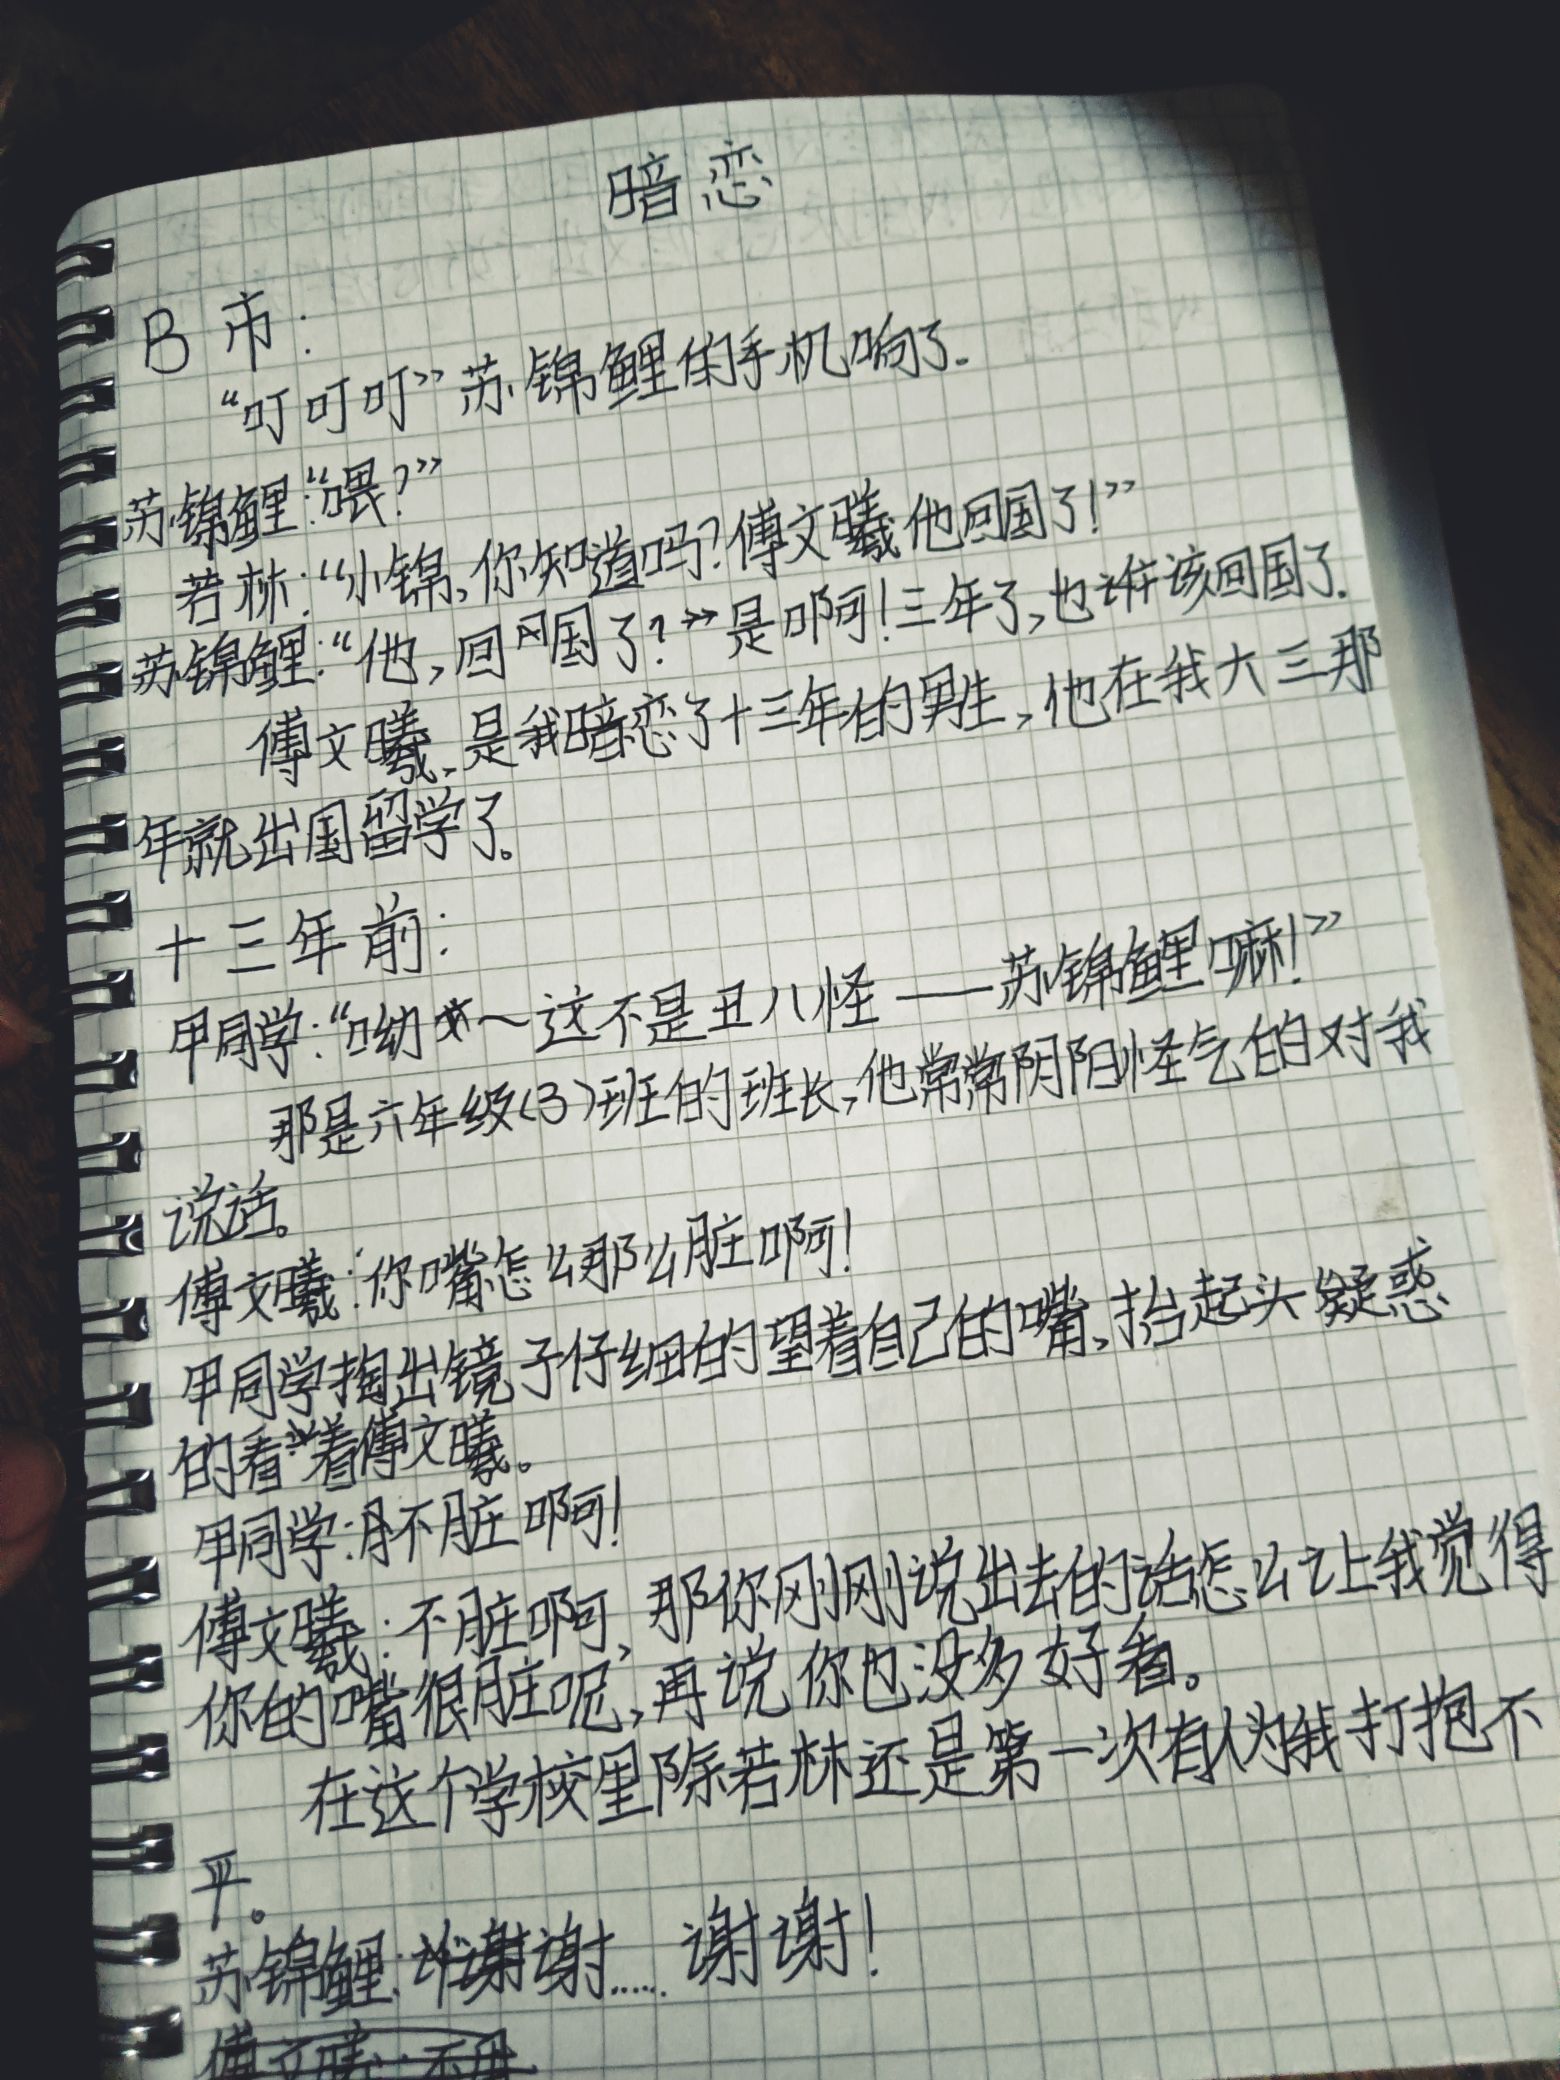 暗恋
B市:
“叮叮叮”苏锦鲤的手机响了.
苏锦鲤:“喂?”
若林:“小锦,你知道吗?傅文曦他回国了!”
苏锦鲤:“他,回国了?”是啊!三年了,也该回国了.
傅文曦,是我暗恋了十三年的男生,他在我大三那
年就出国留学了。
十三年前:
甲同学:“呦~这不是丑八怪——苏锦鲤嘛!”
那是六年级(3)班的班长,他常常阴阳怪气的对我
说话。
傅文曦:你嘴怎么那么脏啊!
甲同学掏出镜子仔细的望着自己的嘴,抬起头疑惑
的看着傅文曦。
甲同学:不脏啊!
傅文曦:不脏啊,那你刚刚说出去的话怎么让我觉得
你的嘴很脏呢,再说你也没多好看。
在这个学校里除若林还是第一次有人为我打抱不
平。
苏锦鲤:谢谢……谢谢!
傅文曦:不用